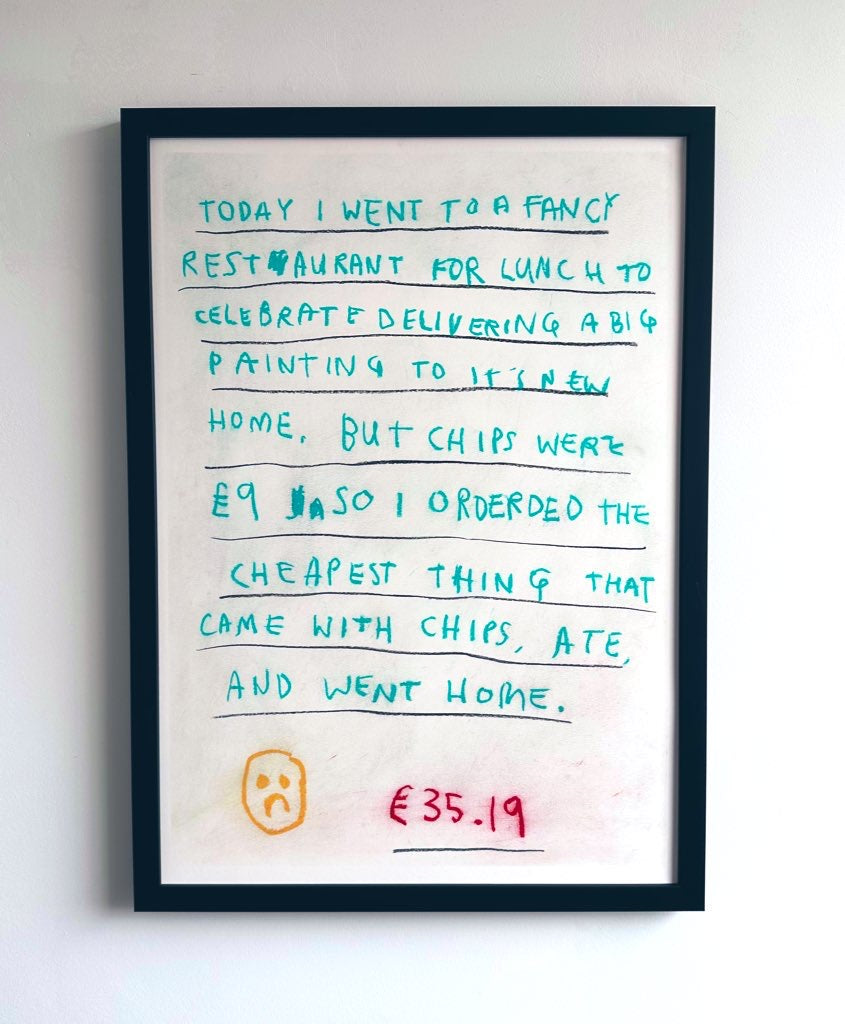 TODAY I WENT TO A FANCY
RESTAURANT FOR LUNCH TO
CELEBRATE DELIVERING A BIG
PAINTING TO IT'S NEW
HOME. BUT CHIPS WERE
£9 SO I ORDERDED THE
CHEAPEST THING THAT
CAME WITH CHIPS, ATE,
AND WENT HOME.
£35.19